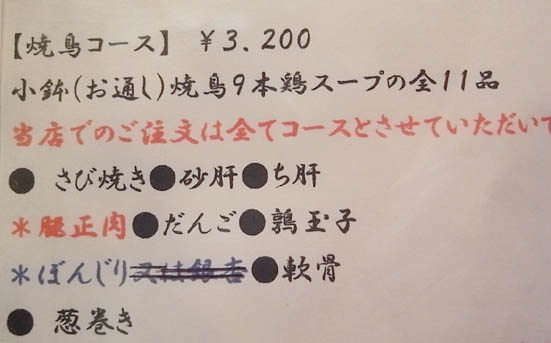 【焼鳥コース】 ￥3.200
小鉢(お通し)焼鳥9本鶏スープの全11品
当店でのご注文は全てコースとさせていただいて
● さび焼き●砂肝●ち肝
＊腿正肉●だんご●鶉玉子
＊ぼんじり又は銀杏●軟骨
● 葱巻き